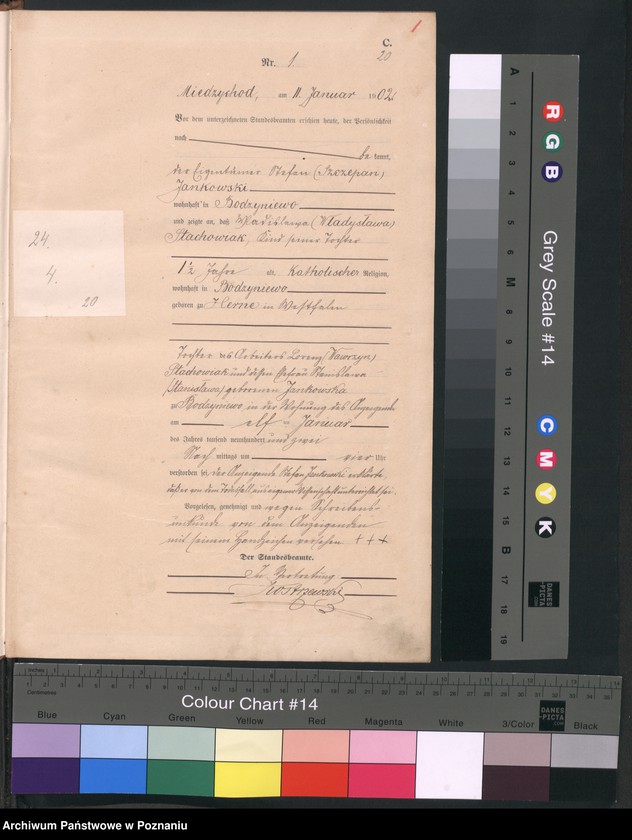 1
C.
20
Nr. 1
Miedzychod, am 11. Januar 1902.
Vor dem unterzeichneten Standesbeamten erschien heute, der Persönlichkeit
nach
be kannt,
der Eigenthümer Stefan (Szczepan)
Jankowski
wohnhaft in Bodzyniewo
und zeigte an, daß Wladislawa (Władysława)
Stachowiak, Kind seiner Tochter
1½ Jahre alt, Katholischer Religion,
wohnhaft in Bodzyniewo
geboren zu Herne in Westfalen
Tochter des Arbeiters Lorenz (Wawrzyn)
Stachowiak und dessen Ehefrau Stanislawa
(Stanisława) geborenen Jankowska
zu Bodzyniewo in der Wohnung des Anzeigenden
am elf Januar
des Jahres tausend neunhundert und zwei
Nach mittags um vier Uhr
verstorben sei, der Anzeigende Stefan Jankowski erklärte,
daß er von dem Todesfall aus eigener Wissenschaft unterrichtet sei.
Vorgelesen, genehmigt und wegen Schreibens-
unkunde von dem Anzeigenden
mit seinem Handzeichen versehen +++
Der Standesbeamte.
In Vertretung
24
4.
20
A 1 2 3 4 5 6 M 8 9 10 11 12 13 14 15 B 17 18 19
R
G
B
C
M
Y
K
Grey Scale #14
DANES-PICTA.COM
Colour Chart #14
DANES-PICTA.COM
Blue Cyan Green Yellow Red Magenta White 3/Color Black
Archiwum Państwowe w Poznaniu